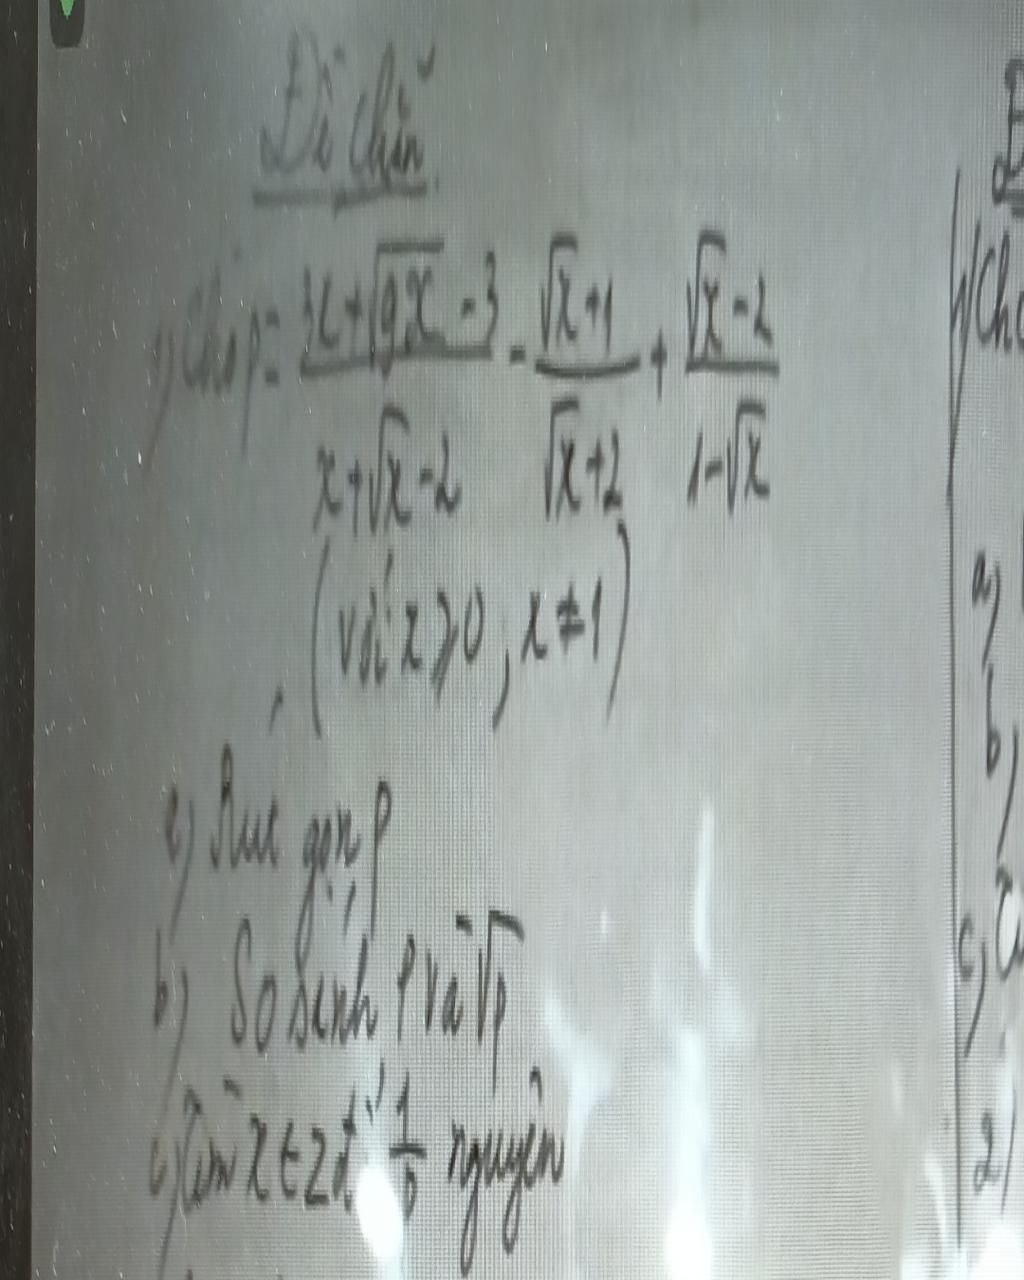 Đề chẵn
1) Cho P = \frac{3x+\sqrt{9x}-3}{x+\sqrt{x}-2} - \frac{\sqrt{x}+1}{\sqrt{x}+2} + \frac{\sqrt{x}-2}{1-\sqrt{x}}
(với x ⩾ 0, x ≠ 1)
a) Rút gọn P
b) So sánh P và \sqrt{P}
c) Tìm x ∈ Z để \frac{1}{P} nguyên
1) Cho
a)
b)
c)
2)